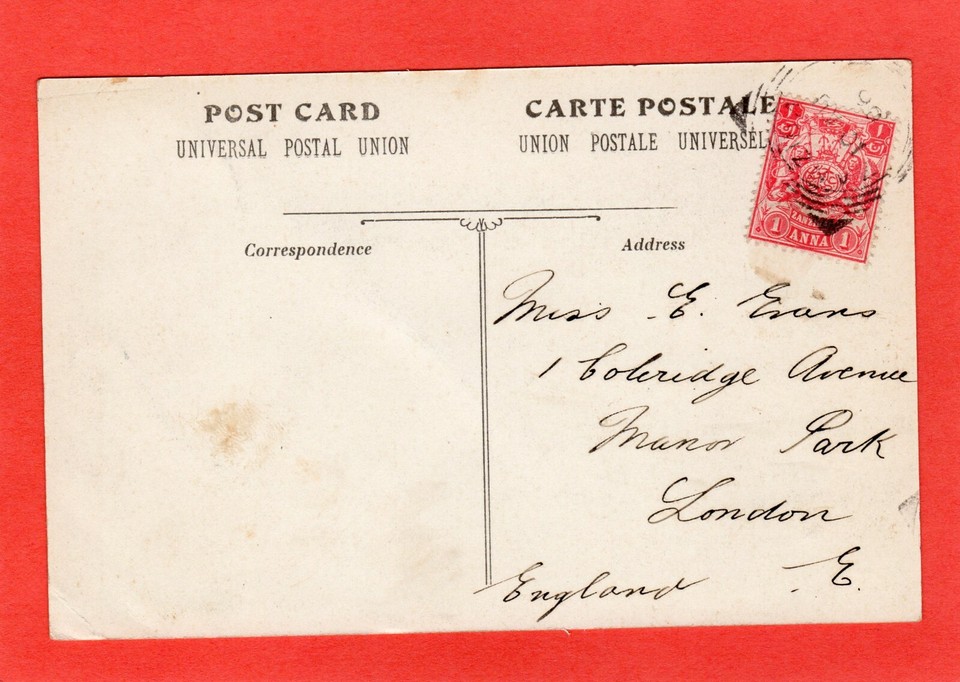 POST CARD
UNIVERSAL POSTAL UNION
CARTE POSTALE
UNION POSTALE UNIVERSEL
Correspondence
Address
1 1
1 ANNA 1
Miss E. Evans
1 Coleridge Avenue
Manor Park
London
E.
England